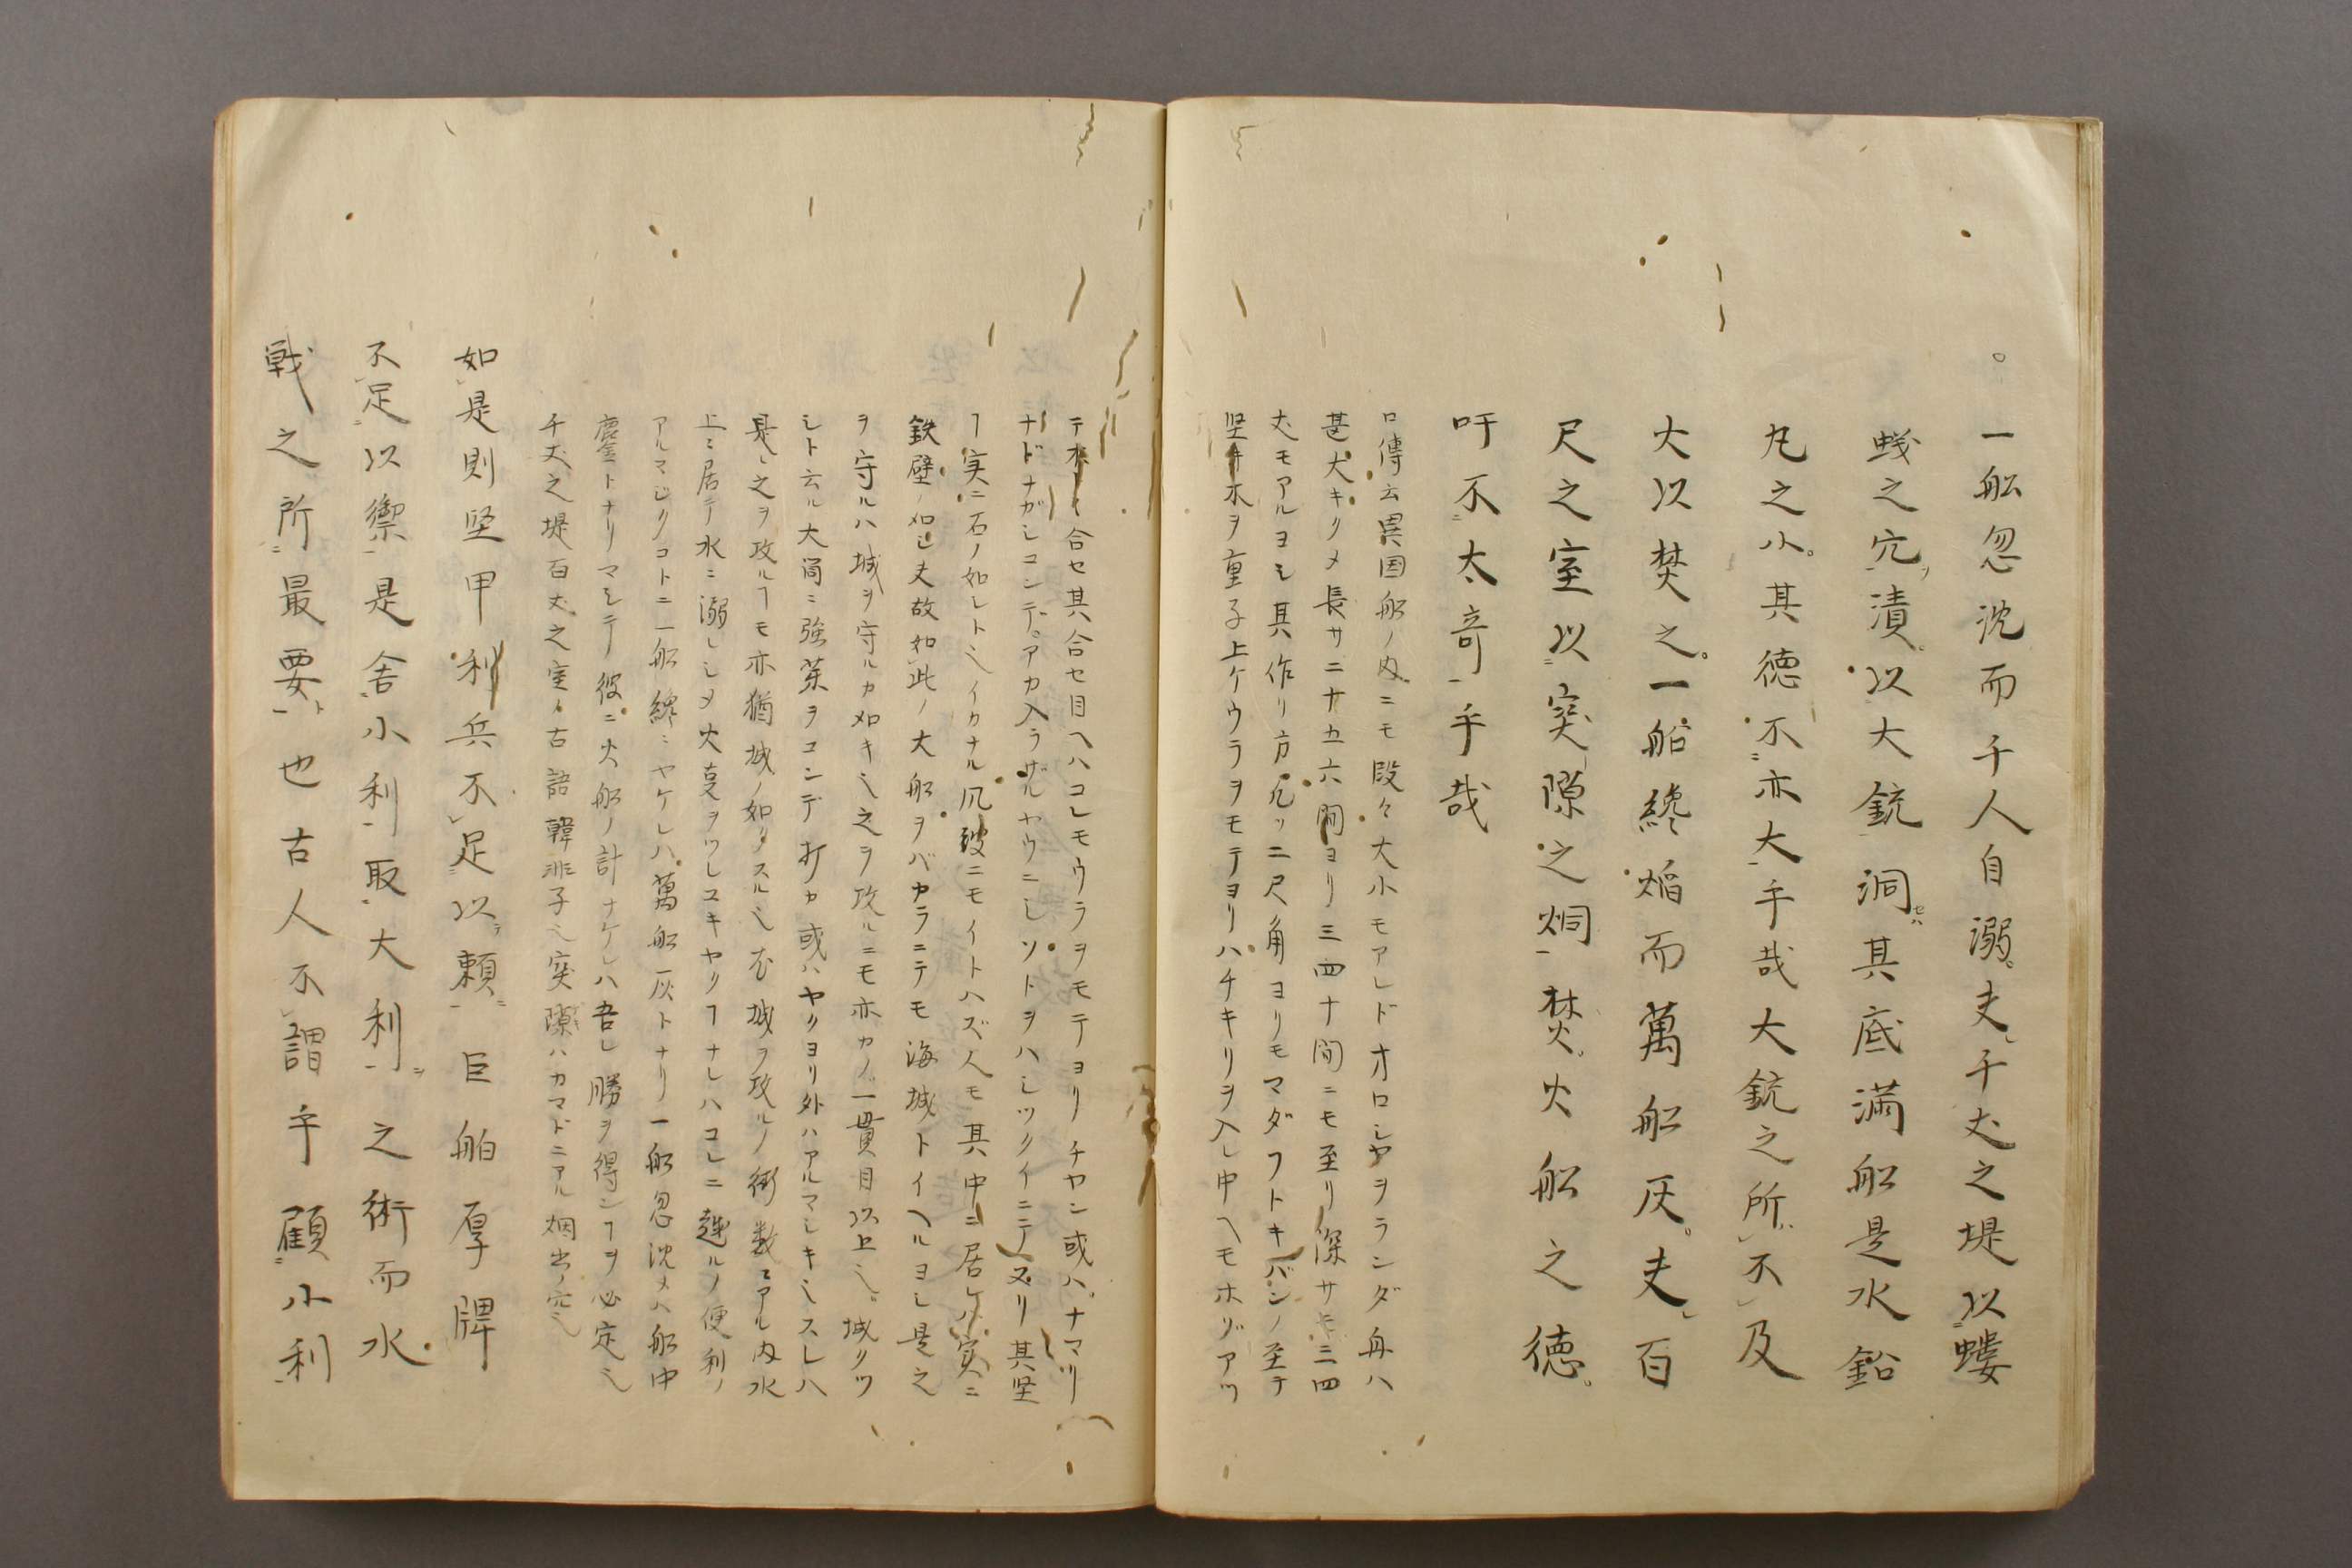 。一船忽沈而千人自溺。夫レ千丈之堤以螻
蟻之穴ヲ漬。以大銃洞セハ其底満船是水鉛
丸之小。其徳不亦大乎哉大銃之所不及
大以焚之。一船纔焔而萬船灰。夫レ百
尺之室以突隙之烟焚。火船之徳。
吁不太奇乎哉
口傳云異国船ノ内ニモ段々大小モアレドオロシヤヲランダ舟ハ
甚大キクメ長サ二十五六間ヨリ三四十間ニモ至リ深サモ三四
丈モアルヨシ其作リ方凡ソ二尺角ヨリモマダフトキバンノ至テ
堅キ木ヲ重子上ケウラヲモテヨリハチキリヲ入レ中ヘモホゾアツ
テ木ト合セ其合セ目ヘハコレモウラヲモテヨリチヤン或ハナマリ
ナドナガシコンデアカ入ラザルヤウニシソトヲハシツクイニテヌリ其堅
ヿ実ニ石ノ如シト云イカナル風破ニモイトハズ人モ其中ニ居レハ実ニ
鉄壁ノ如シ夫故如此ノ大船ヲバカラニテモ海城トイヘルヨシ是之
ヲ守ルハ城ヲ守ルカ如キ也之ヲ攻ルニモ亦カノ一貫目以上ノ城クツ
シト云ル大筒ニ強薬ヲコンデ打カ或ハヤクヨリ外ハアルマシキ也スレハ
是レ之ヲ攻ルヿモ亦猶城ノ如クスル也尤城ヲ攻ルノ術数々アル内水
上ニ居テ水ニ溺レシメ火ヲツレユキヤクヿナレハコレニ越ルノ便利ノ
アルマシクコトニ一船纔ニヤケレハ萬船灰トナリ一船忽沈メハ船中
鏖トナリマシテ彼ニ火船ノ計ナケレハ吾レ勝ヲ得ンヿヲ必定也
千丈之堤百丈之室ハ古語韓非子也突隙ハカマドニアル烟出ノ穴也
如是則堅甲利兵不足以頼巨舶厚牌
不足以禦是舍小利取大利之術而水
戦之所最要也古人不謂乎顧小利